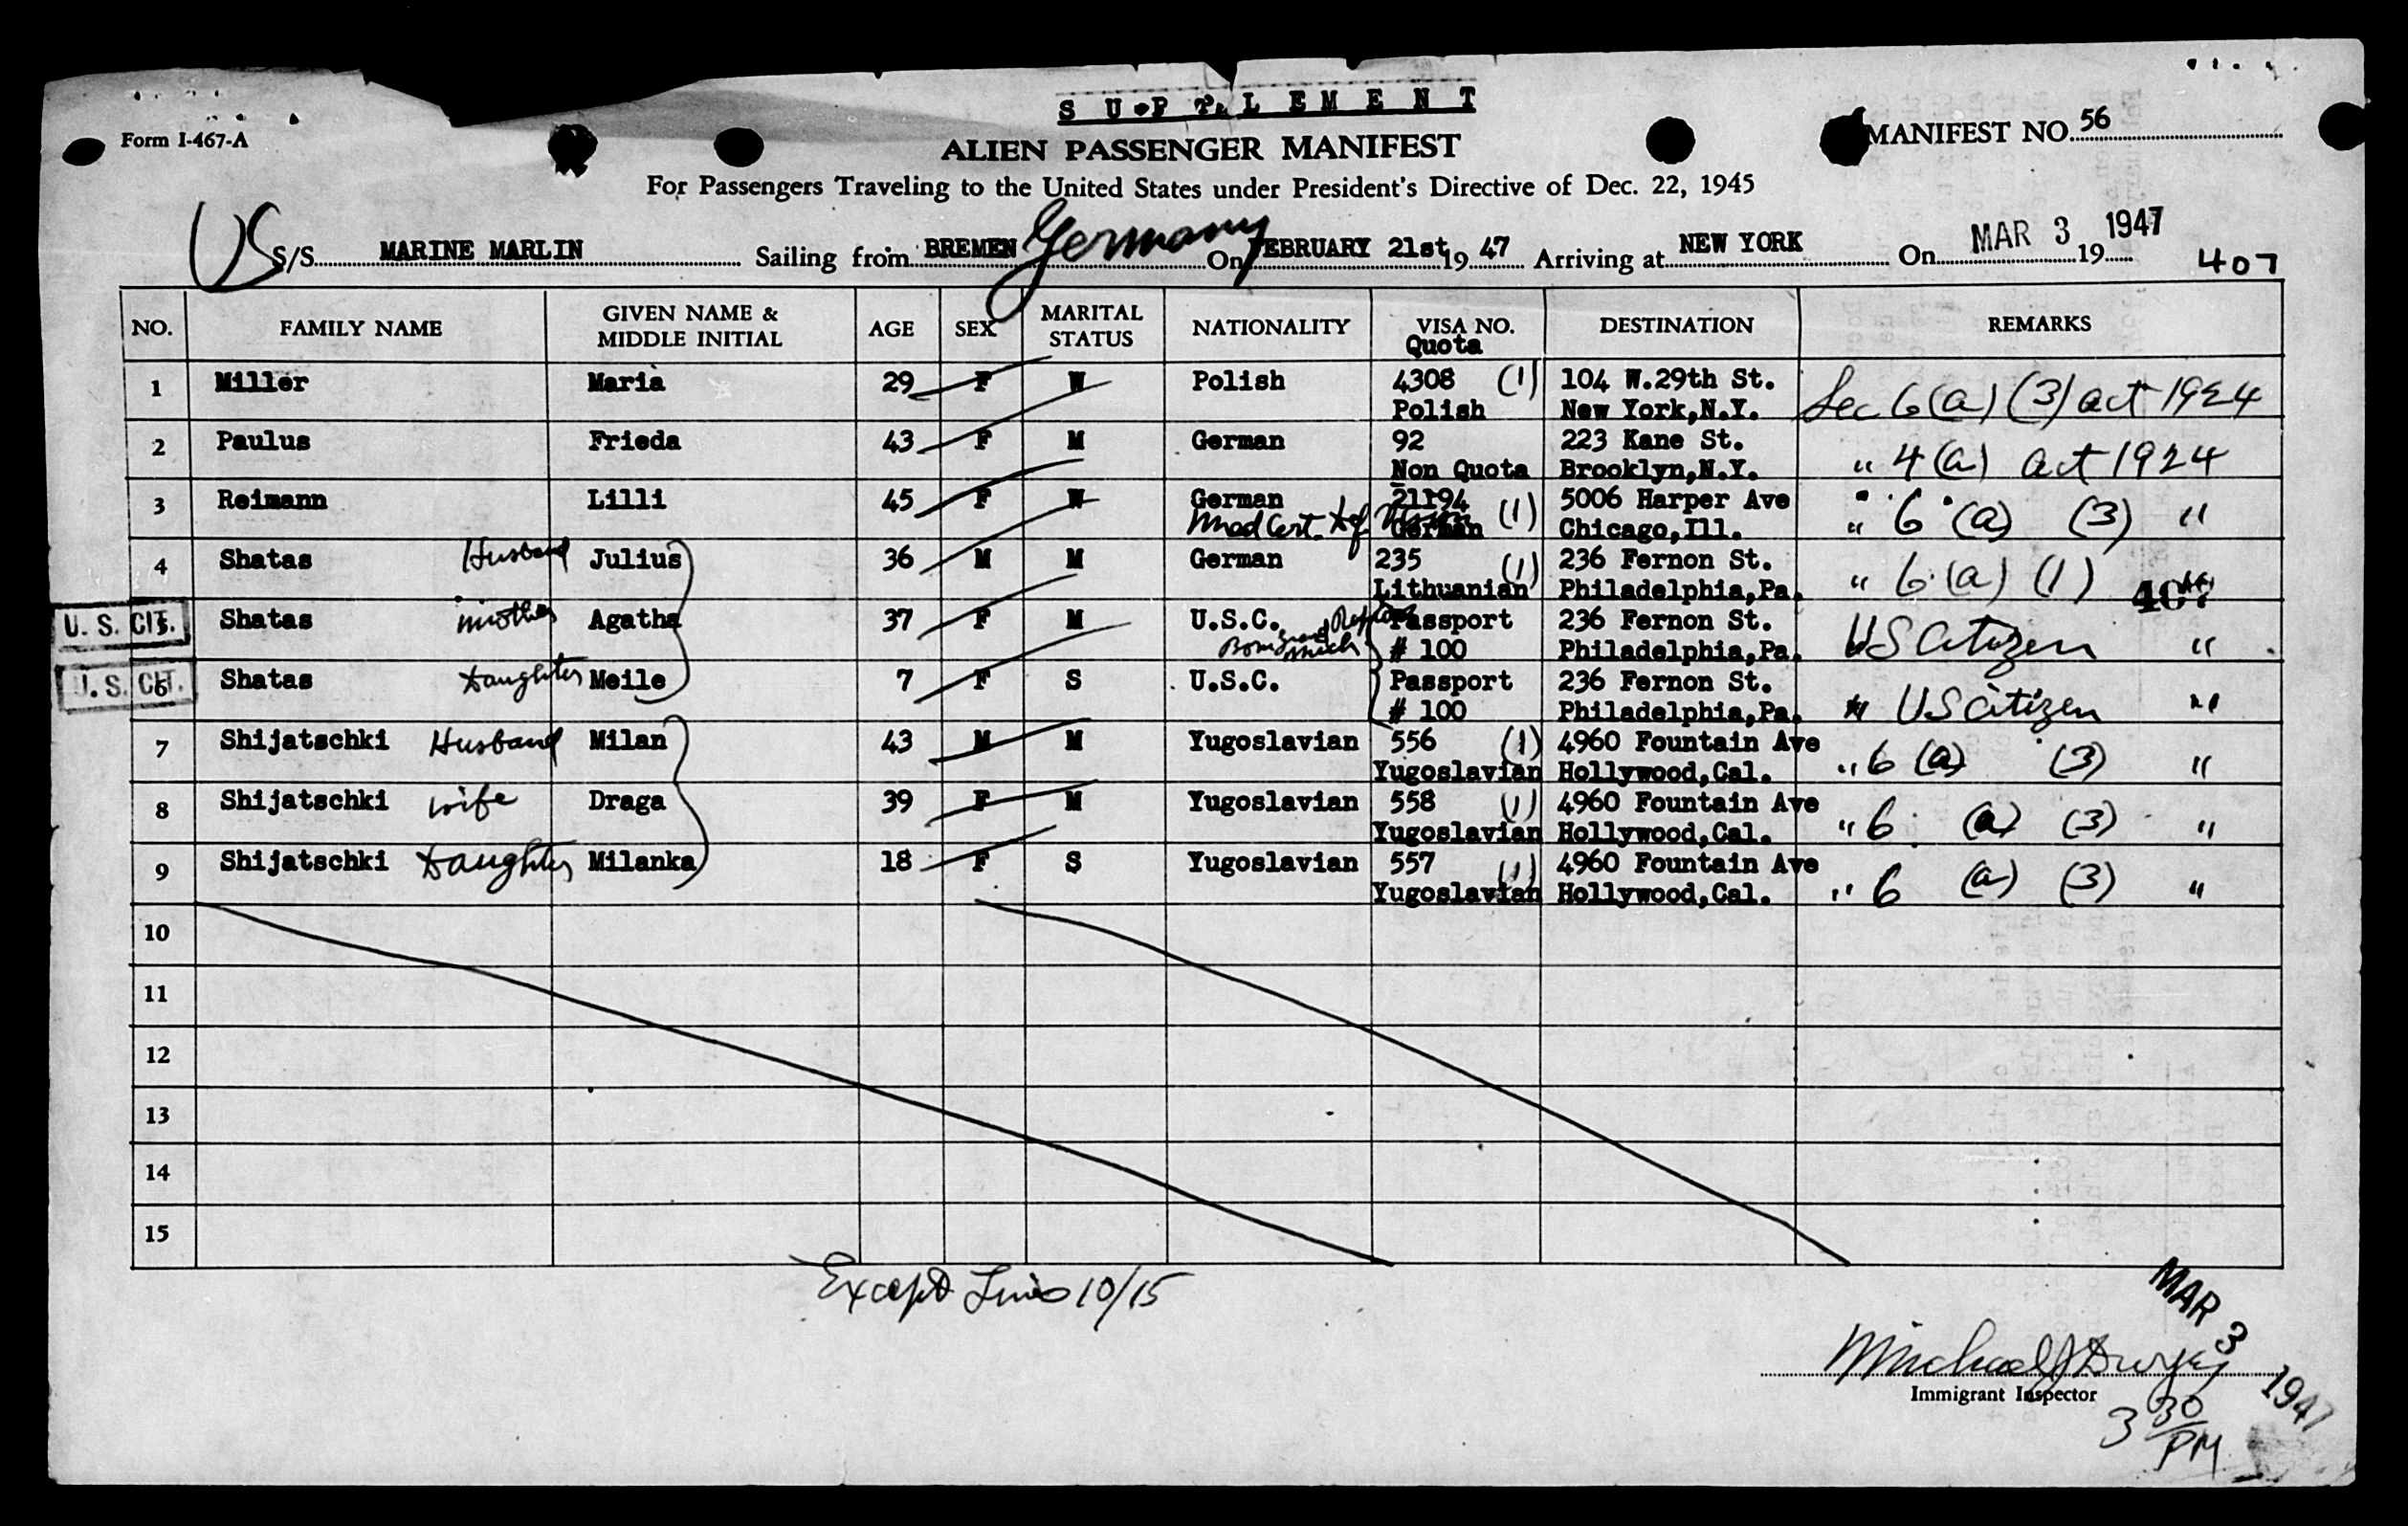 S U P P L E M E N T
Form I-467-A
ALIEN PASSENGER MANIFEST
MANIFEST NO. 56
For Passengers Traveling to the United States under President's Directive of Dec. 22, 1945
US S/S MARINE MARLIN Sailing from BREMEN Germany On FEBRUARY 21st 19 47 Arriving at NEW YORK On MAR 3 1947 19
407
NO. FAMILY NAME GIVEN NAME & MIDDLE INITIAL AGE SEX MARITAL STATUS NATIONALITY VISA NO. Quota DESTINATION REMARKS
1 Miller Maria 29 F W Polish 4308 (1) 104 W.29th St. Sec 6(a) (3) act 1924
Polish New York,N.Y.
2 Paulus Frieda 43 F M German 92 223 Kane St. " 4(a) act 1924
Non Quota Brooklyn,N.Y.
3 Reimann Lilli 45 F W German 21194 (1) 5006 Harper Ave " 6 (a) (3) "
Med Cert. German Chicago,Ill.
4 Shatas Husband Julius 36 M M German 235 (1) 236 Fernon St. " 6 (a) (1)
Lithuanian Philadelphia,Pa. 407
U. S. CIT. 5 Shatas mother Agatha 37 F M U.S.C. Passport 236 Fernon St. US Citizen "
Born Grand Rapids Mich # 100 Philadelphia,Pa.
U. S. CIT. 6 Shatas Daughter Meile 7 F S U.S.C. Passport 236 Fernon St. US Citizen "
# 100 Philadelphia,Pa.
7 Shijatschki Husband Milan 43 M M Yugoslavian 556 (1) 4960 Fountain Ave " 6 (a) (3) "
Yugoslavian Hollywood,Cal.
8 Shijatschki wife Draga 39 F M Yugoslavian 558 (1) 4960 Fountain Ave " 6 (a) (3) "
Yugoslavian Hollywood,Cal.
9 Shijatschki Daughter Milanka 18 F S Yugoslavian 557 (1) 4960 Fountain Ave " 6 (a) (3) "
Yugoslavian Hollywood,Cal.
10
11
12
13
14
15
Except Lines 10/15
MAR 3 1947
Michael J
Immigrant Inspector
3 30 PM